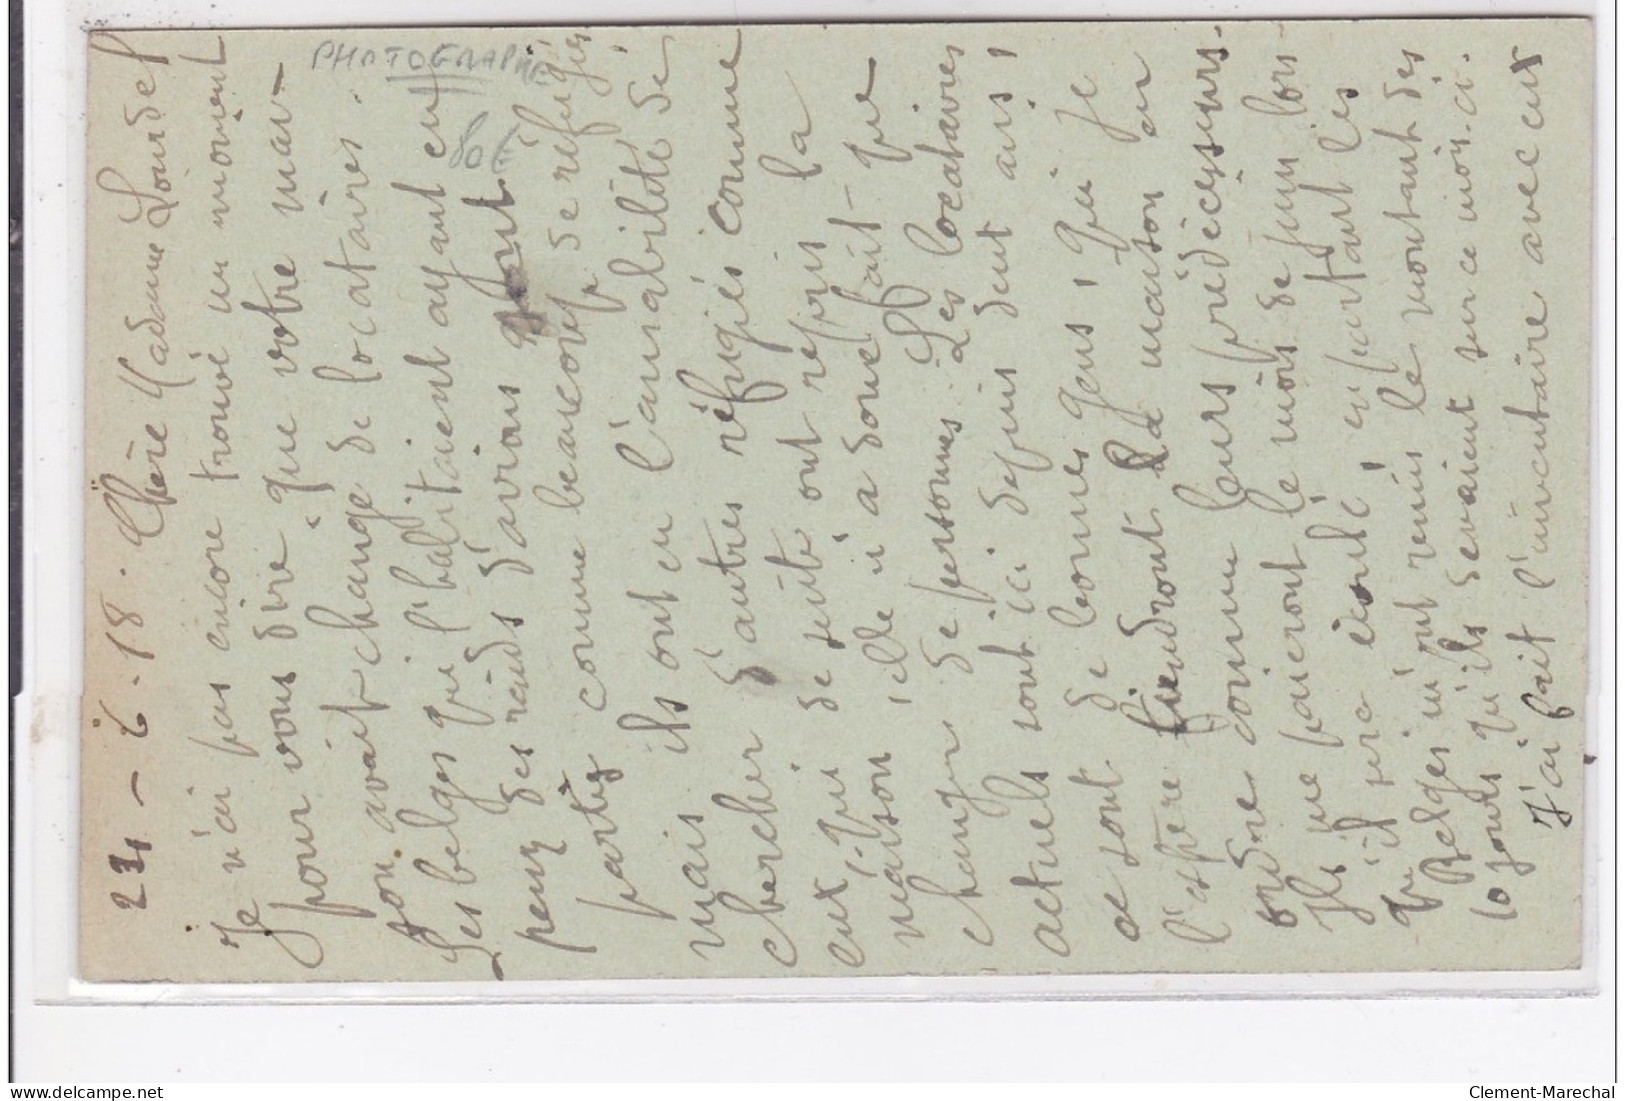 23 - 6 - 18. Chère Madame Lourdel
Je n'ai pas encore trouvé un moment
pour vous dire que votre mai-
son avait changé de locataires.
Les belges qui l'habitaient ayant eu
peur des raids d'avions sont
partis comme beaucoup se réfugier
mais ils ont eu l'amabilité de
chercher d'autres réfugiés comme
eux, qui de suite ont repris la
maison, elle n'a donc fait que
changer de personnes. Les locataires
actuels sont ici depuis deux ans,
ce sont de bonnes gens, qui je
l'espère tiendront la maison en
ordre comme leurs prédécesseurs.
Ils me paieront le mois de juin lors-
qu'il sera écoulé, en partant les
Belges m'ont remis le montant des
10 jours qu'ils devaient sur ce mois-ci.
J'ai fait l'inventaire avec eux
PHOTOGRAPHE
80€
Delcampe.net
Clement-Marechal